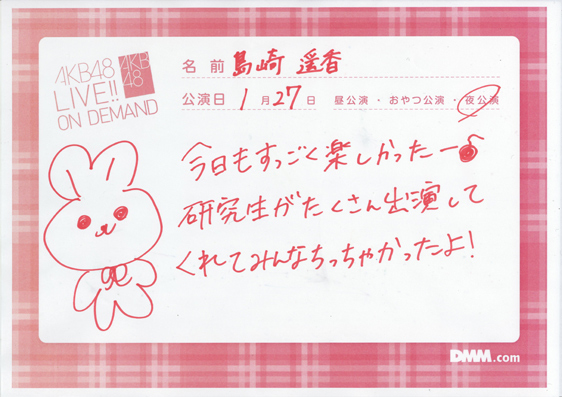 AKB48
LIVE!!
ON DEMAND
AKB
48
名前 島崎 遥香
公演日 1月27日 昼公演・おやつ公演・夜公演
今日もすっごく楽しかったー♪
研究生がたくさん出演して
くれてみんなちっちゃかったよ!
DMM.com